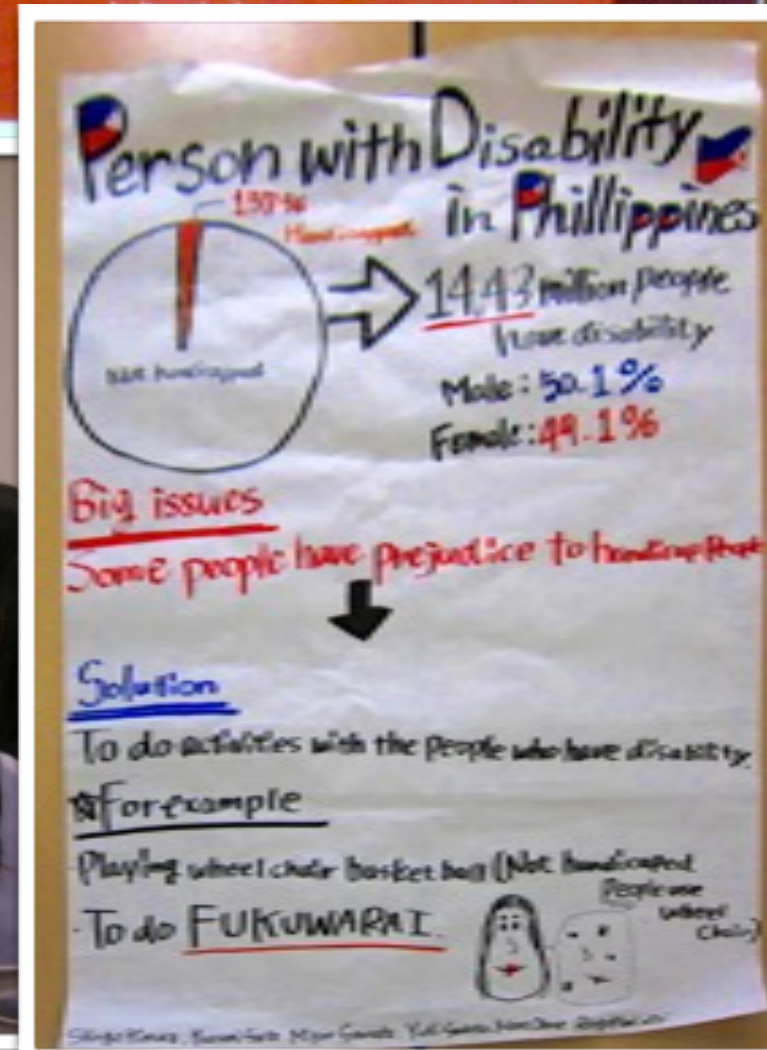 Person with Disability
in Phillippines
Handicapped
Not handicapped
14,43 million people
have disability
Male: 50.1%
Female: 49.1%
Big issues
Some people have prejustice to handicap People
Solution
To do activities with the people who have disability
☆For example
Playing wheel chair basket ball (Not handicaped
People use
wheel
Chair)
·To do FUKUWARAI